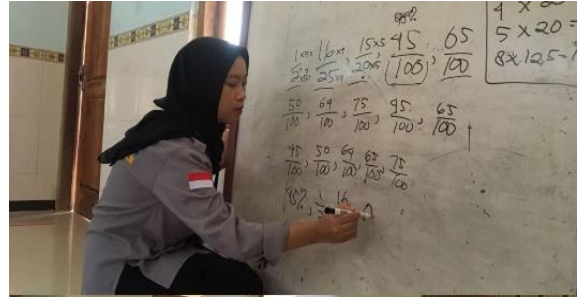 45%
1×50/2×50, 16×4/25×4, 15×5/20×5, 45/100, 65/100
50/100, 64/100, 75/100, 45/100, 65/100
45/100, 50/100, 64/100, 65/100, 75/100
45%, 1 16
4 ×
5 × 20 =
8 × 125 =